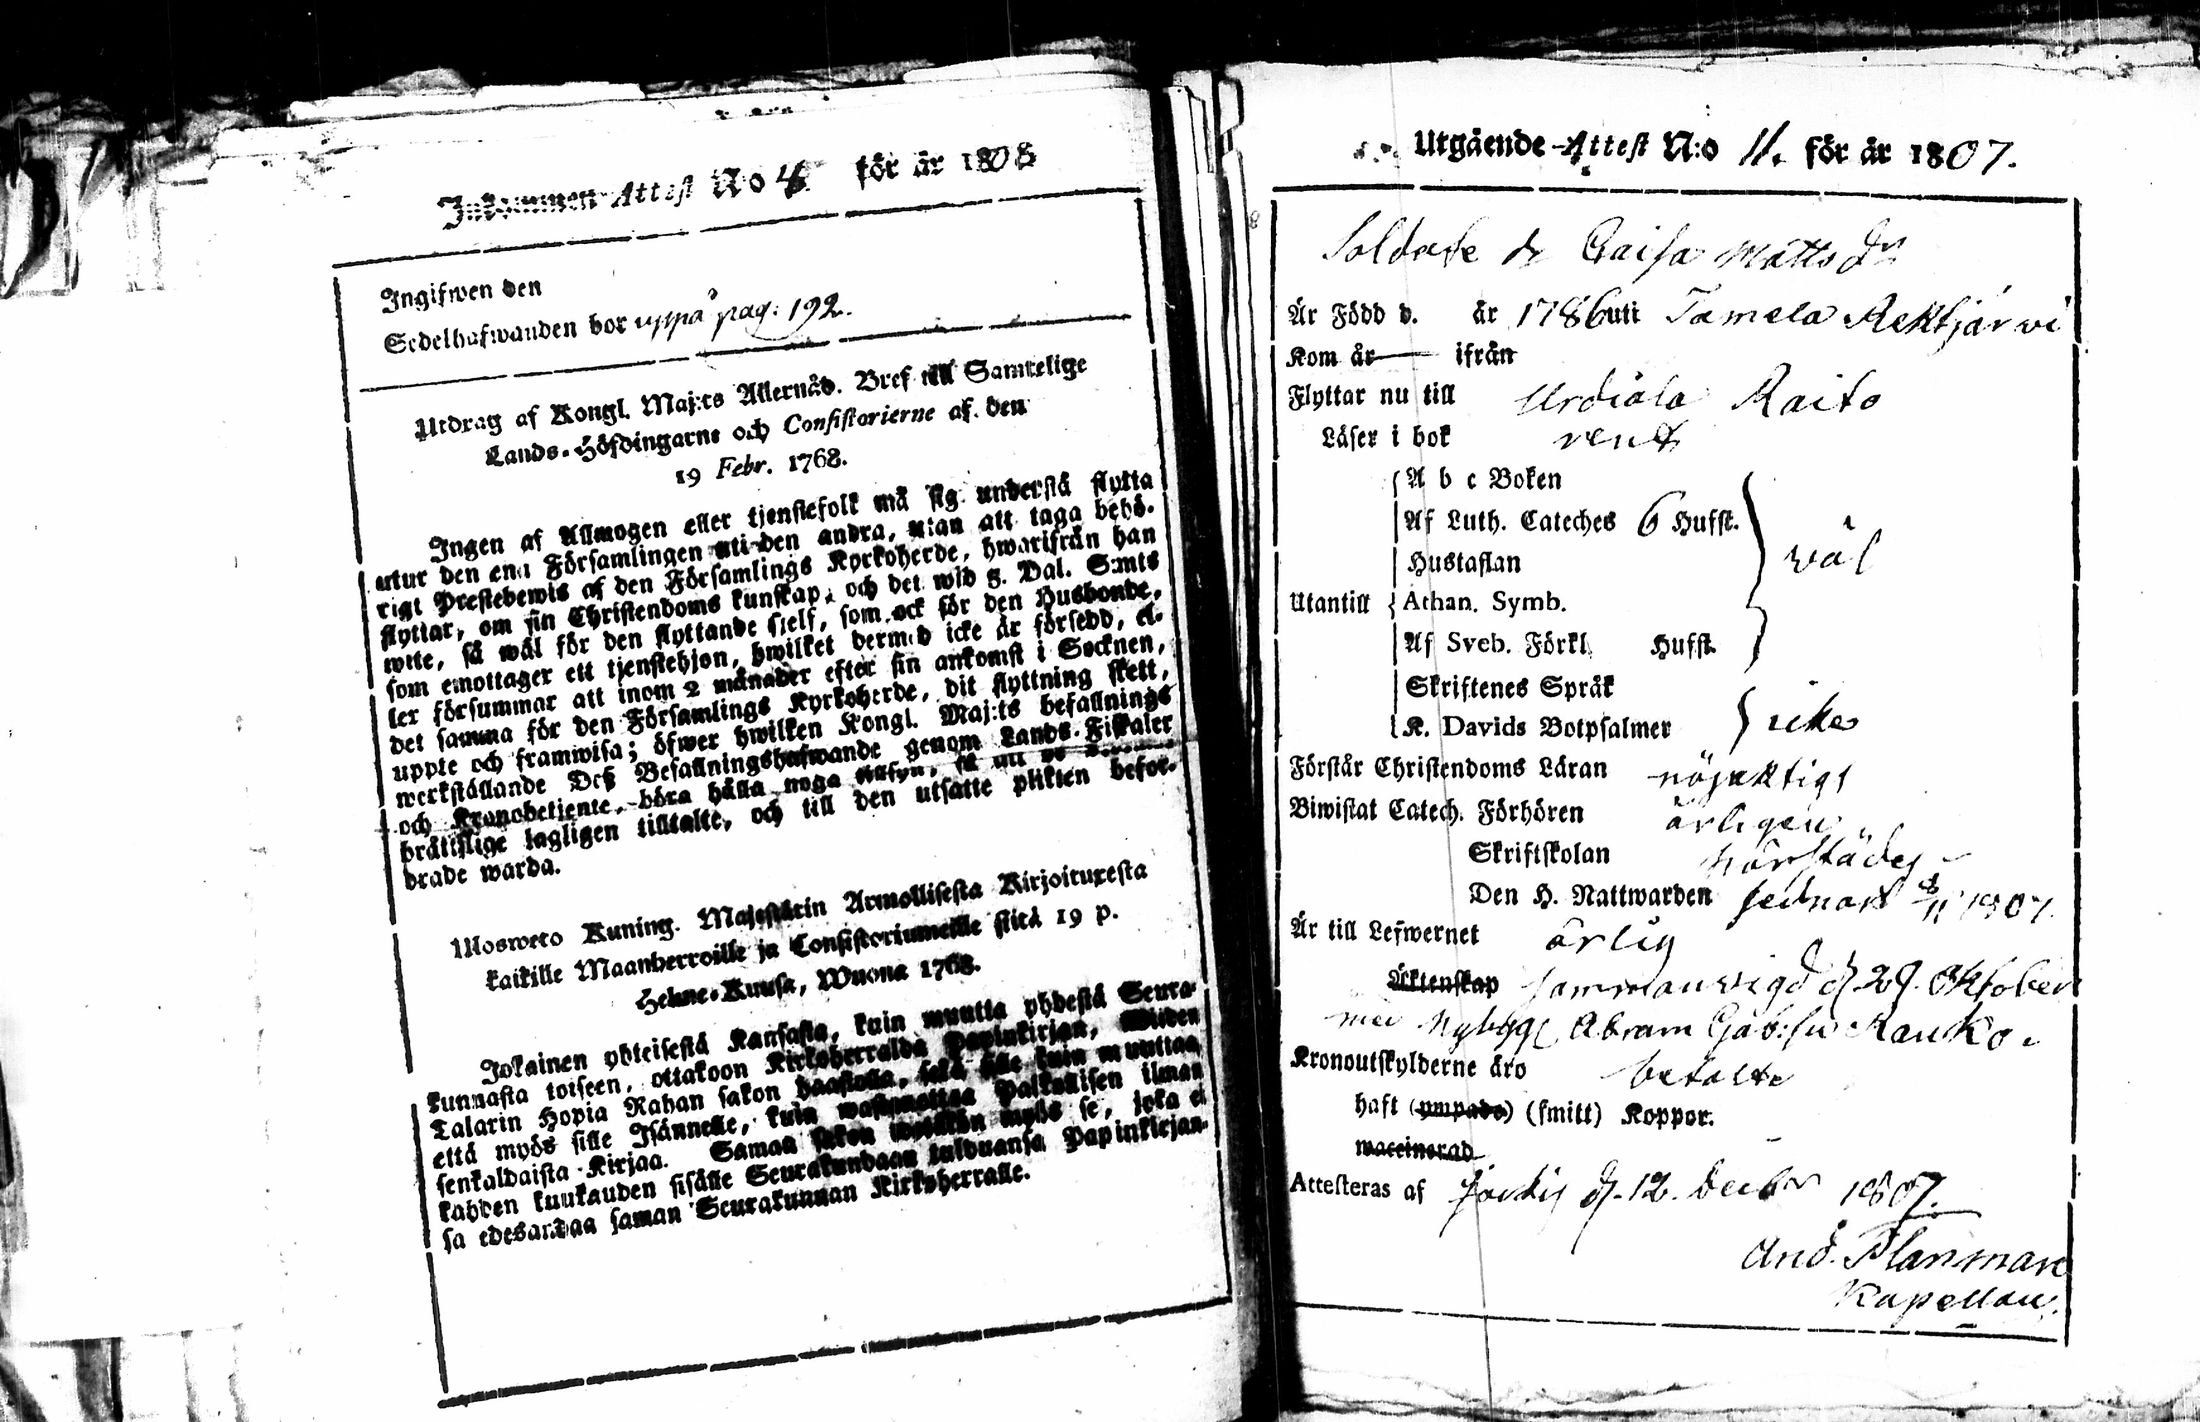 Inkommen Attest No 4 för år 1808
Ingifwen den
Sedelhafwanden bor uppå pag: 192.
Utdrag af Kongl. Maj:ts Allernåd. Bref till Samtelige
Lands-Höfdingarne och Consistorierne af den
19 Febr. 1768.
Ingen af Allmogen eller tjenstefolk må sig understå flytta
utur den ena Församlingen uti den andra, utan att taga behö-
rigt Prestebewis af den Församlings Kyrkoherde, hwarifrån han
flyttar, om sin Christendoms kunskap, och det wid 8. Dal. S:mts
wite, så wäl för den flyttande sjelf, som ock för den Husbonde,
som emottager ett tjenstehjon, hwilket dermed icke är försedd, el-
ler försummar att inom 2 månader efter sin ankomst i Socknen,
det samma för den Församlings Kyrkoherde, dit flyttning skett,
uppte och framwisa; öfwer hwilken Kongl. Maj:ts befallnings
werkställande Deß Befallningshafwande genom Lands-Fiskaler
och Kronobetjente, böra hålla noga tillsyn, så att de
bråttslige lagligen tilltalte, och till den utsatte plikten befor-
drade warda.
Ulosweto Kuning. Majestätin Armollisesta Kirjoituxesta
kaikille Maanherroille ja Consistoriumeille siitä 19 p.
Helme-Kuusa, Wuona 1768.
Jokainen yhteisestä Kansasta, kuin muutta yhdestä Seura-
kunnasta toiseen, ottakoon Kirkoherralda Papinkirjan, Wiiden
Talarin Hopia Rahan sakon haastolla, sekä sille kuin muuttaa
että myös sille Isännelle, kuin wastaanottaa Palkollisen ilman
senkaldaista Kirjaa. Samaa sakon wetäkön myös se, joka ei
kahden kuukauden sisälle Seurakundaan tulduansa Papinkirjan-
sa edesandaa saman Seurakunnan Kirkoherralle.
Utgående Attest N:o 11. för år 1807.
Caisa Matts dr
Är Född d. år 1786 uti Tamela Rekijärwi
Kom år ifrån
Flyttar nu till Urdiala Raito
Läser i bok rent
A b c Boken
Af Luth. Cateches 6 Hufst.
Hustaflan
wäl
Utantill Athan. Symb.
Af Sveb. Förkl. Hufst.
Skriftenes Språk
K. Davids Botpsalmer icke
Förstår Christendoms Läran nöjaktigt
Biwistat Catech. Förhören årligen
Skriftskolan härstädes
Den H. Nattwarden sednast 1807.
Är till Lefwernet ärlig
Äktenskap sammanwigd d. 29. Oktober
med Nybygg. Abram Gab:son Rauko.
Kronoutskylderne äro betalte
haft (ympade) (smitt) Koppor.
waccinerad
Attesteras af Jockis d. 12. Decbr 1807.
And. Planman
Kapellan.